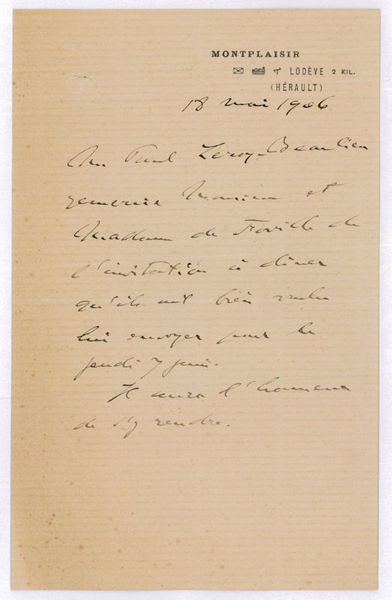 MONTPLAISIR
LODÈVE 2 KIL.
(HÉRAULT)
18 mai 1906
Mr Paul Leroy-Beaulieu
remercie Monsieur et
Madame de Foville de
l'invitation à dîner
qu'ils ont bien voulu
lui envoyer pour le
jeudi 7 juin.
Il aura l'honneur
de s'y rendre.